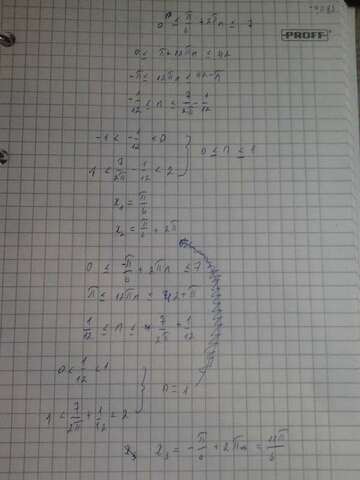 PROFF
0 ≤ π/6 + 2πn ≤ 7
0 ≤ π + 12πn ≤ 42
-π ≤ 12πn ≤ 42 - π
-1/12 ≤ n ≤ 7/2π - 1/12
-1 < -1/12 < 0
0 ≤ n ≤ 1
1 < 7/2π - 1/12 < 2
x₁ = π/6
x₂ = π/6 + 2π
0 ≤ -π/6 + 2πn ≤ 7
π ≤ 12πn ≤ 42 + π
1/12 ≤ n ≤ 7/2π + 1/12
0 < 1/12 < 1
n = 1
1 < 7/2π + 1/12 < 2
x₃ = -π/6 + 2πn = 11π/6